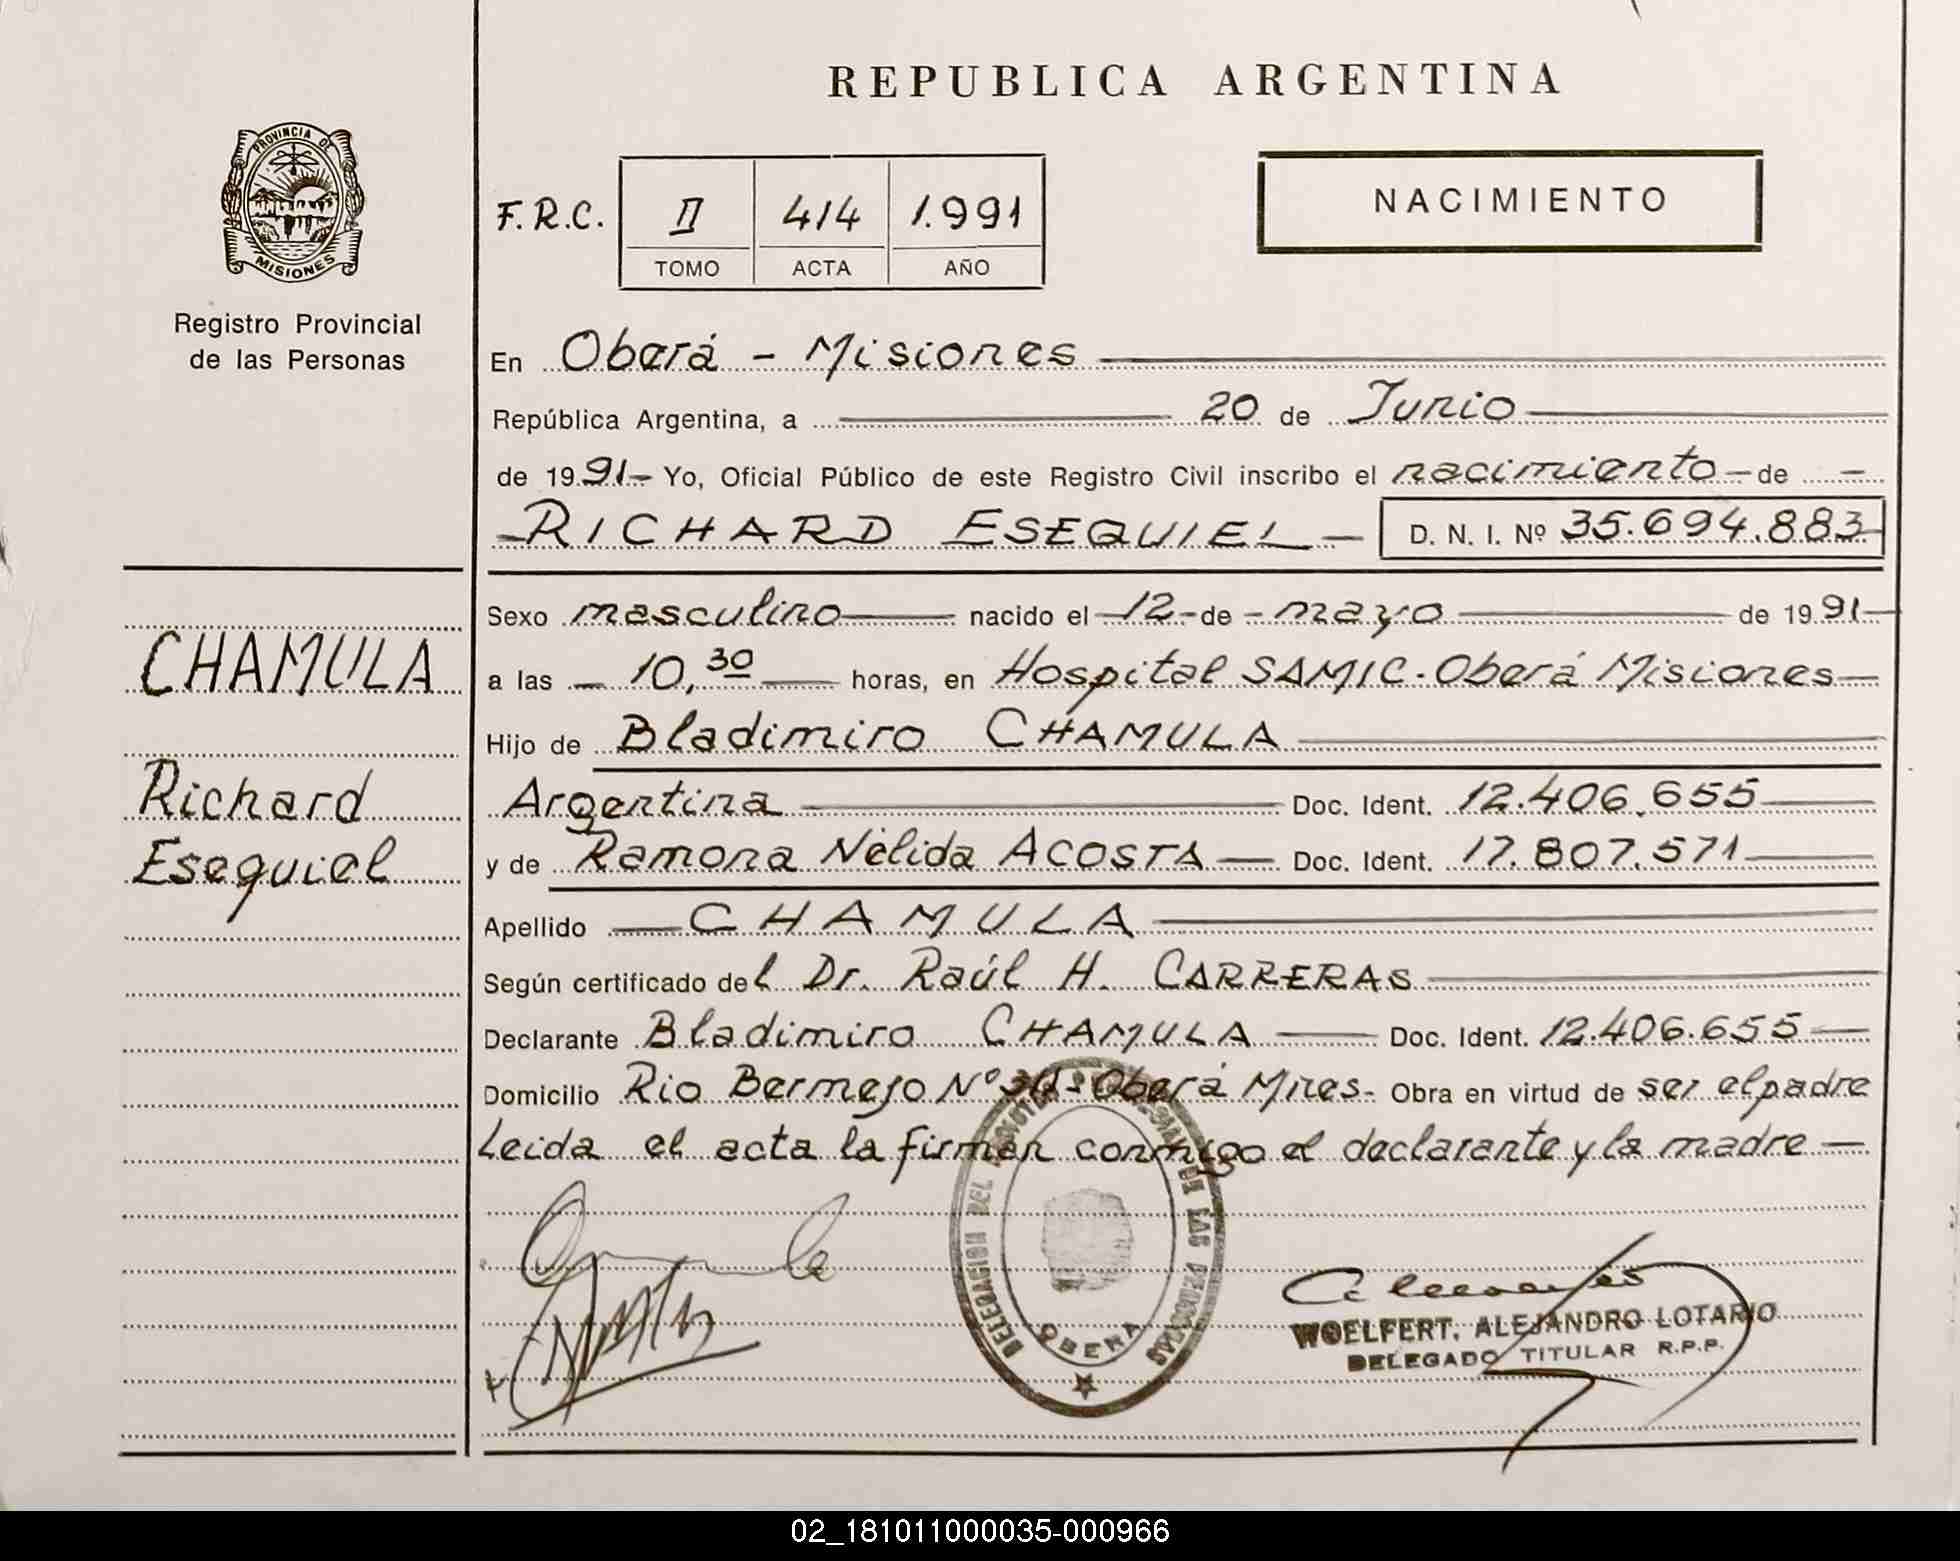 REPUBLICA ARGENTINA
PROVINCIA DE
MISIONES
Registro Provincial
de las Personas
F.R.C. II 414 1.991
TOMO ACTA AÑO
NACIMIENTO
En Oberá - Misiones
República Argentina, a 20 de Junio
de 1991- Yo, Oficial Público de este Registro Civil inscribo el nacimiento - de -
RICHARD ESEQUIEL - D. N. I. Nº 35.694.883
CHAMULA
Richard
Esequiel
Sexo masculino nacido el 12 de mayo de 1991
a las 10,30 horas, en Hospital SAMIC - Oberá Misiones
Hijo de Bladimiro CHAMULA
Argentina Doc. Ident. 12.406.655
y de Ramona Nélida ACOSTA Doc. Ident. 17.807.571
Apellido CHAMULA
Según certificado del Dr. Raúl H. CARRERAS
Declarante Bladimiro CHAMULA Doc. Ident. 12.406.655
Domicilio Rio Bermejo Nº - Oberá Mnes - Obra en virtud de ser el padre
Leida el acta la firman conmigo el declarante y la madre
DELEGACION DEL DE LAS PERSONAS
OBERA
WOELFERT, ALEJANDRO LOTARIO
DELEGADO TITULAR R.P.P.
02_181011000035-000966